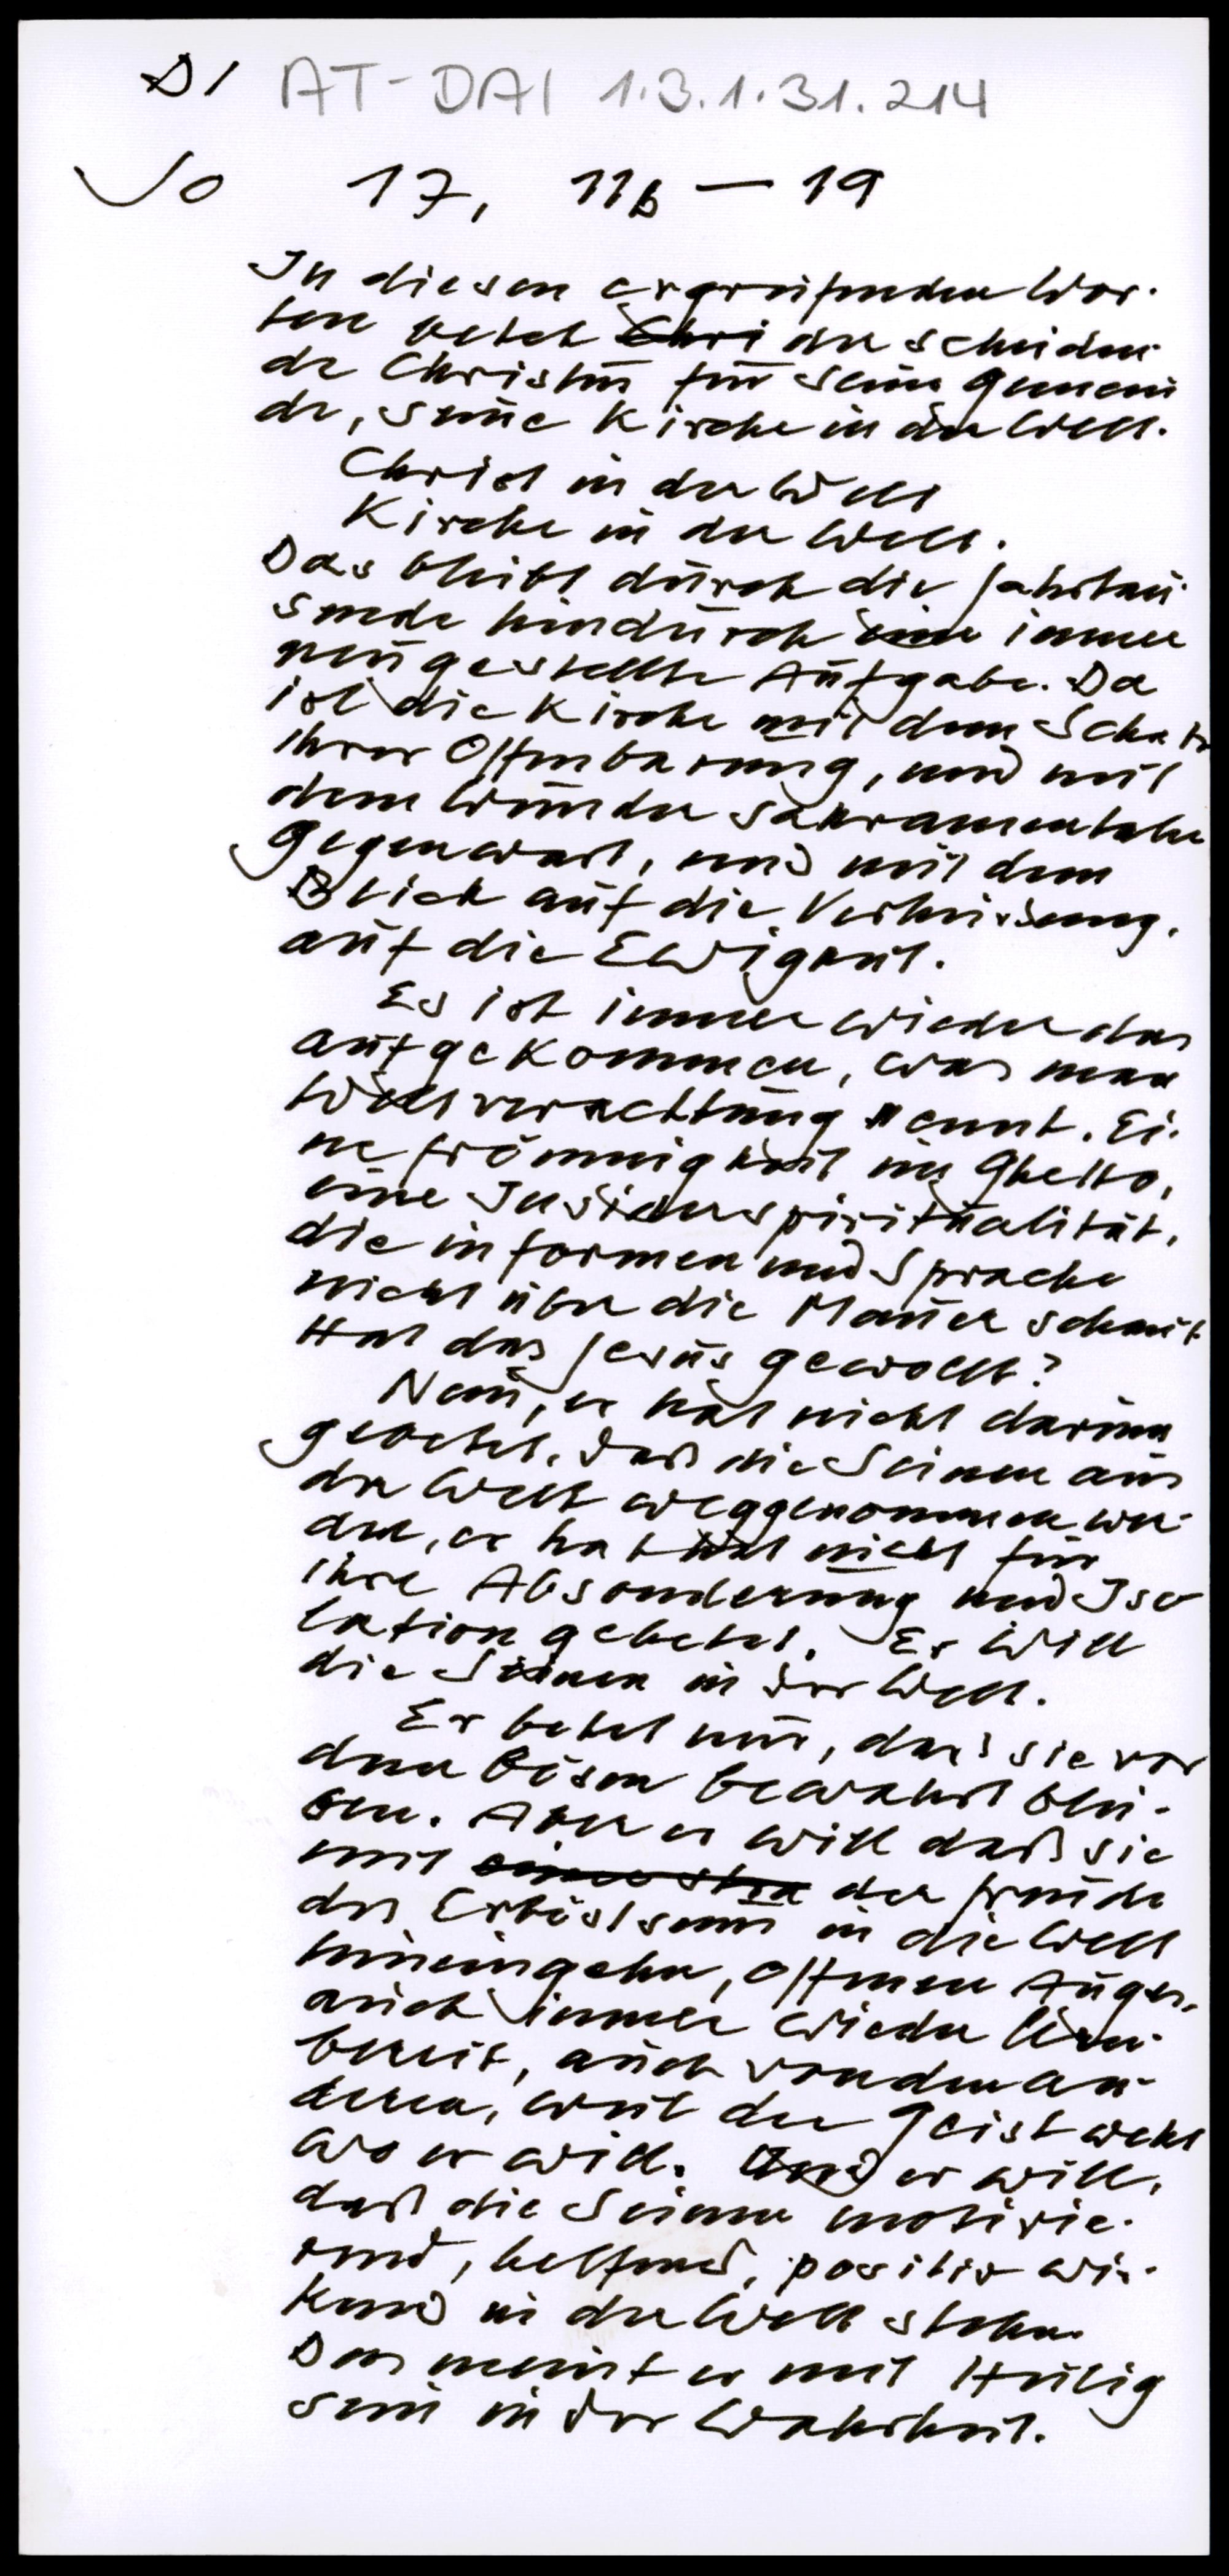 DI AT-DAI 1.3.1.31.214
Jo 17, 11b – 19
In diesen ergreifenden Wor-
ten betet Chri der scheiden-
de Christus für seine Gemein
de, seine Kirche in der Welt.
Christ in der Welt
Kirche in der Welt.
Das bleibt durch die Jahrtau-
sende hindurch eine immer
neu gestellte Aufgabe. Da
ist die Kirche mit dem Schatz
ihrer Offenbarung, und mit
dem Wunder sakramentaler
Gegenwart, und mit dem
Blick auf die Verheissung,
auf die Ewigkeit.
Es ist immer wieder das
aufgekommen, was man
Weltverachtung nennt. Ei-
ne Frömmigkeit im Ghetto,
eine Insiderspiritualität,
die in Formen und Sprache
nicht über die Mauer schaut.
Hat das Jesus gewollt?
Nein, er hat nicht darum
gebetet, daß die Seinen aus
der Welt weggenommen wer-
den, er hat nicht für
ihre Absonderung und Iso
lation gebetet. Er will
die Seinen in der Welt.
Er betet nur, dass sie vor
dem Bösen bewahrt blei-
ben. Aber er will daß sie
mit der Freude
des Erlöstseins in die Welt
hineingehen, offenen Auges,
auch immer wieder lern-
bereit, auch von den an-
deren, weil der Geist weht
wo er will. Und er will,
daß die Seinen motivie-
rend, helfend, positiv wir-
kend in der Welt stehen.
Das meint er mit Heilig
sein in der Wahrheit.